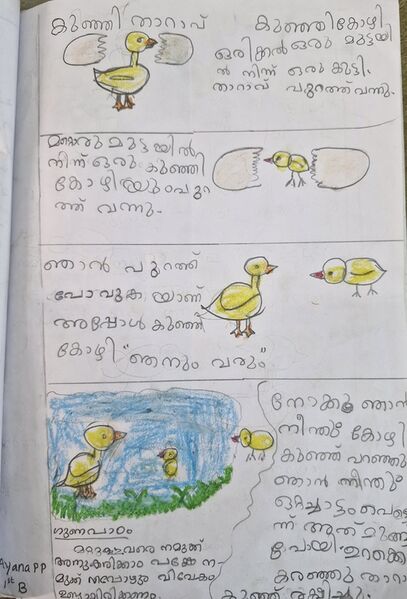 കുഞ്ഞി താറാവ്
കുഞ്ഞികോഴി
ഒരിക്കൽ ഒരു മുട്ടയി
ൽ നിന്ന് ഒരു കുട്ടി
താറാവ് പുറത്ത് വന്നു.
മറ്റൊരു മുട്ടയിൽ
നിന്ന് ഒരു കുഞ്ഞി
കോഴിയും പുറ
ത്ത് വന്നു.
ഞാൻ പുറത്ത്
പോവുക യാണ്
അപ്പോൾ കുഞ്ഞി
കോഴി "ഞനും വരും"
നോക്കൂ ഞാൻ
നീന്തും കോഴി
കുഞ്ഞ് പറഞ്ഞു
ഞാൻ നീന്തും
ഒറ്റച്ചാട്ടം പെട്ടെ
ന്ന് അത് മുങ്ങി
പോയി ഉറക്കെ
കരഞ്ഞു താറാ
കുഞ്ഞ് രക്ഷിച്ചു.
ഗുണപാഠം
മറ്റുള്ളവരെ നമുക്ക്
അനുകരിക്കാം പക്ഷേ ന
മുക്ക് എപ്പോഴും വിവേകം
ഉണ്ടായിരിക്കണം.
Ayana PP
1st
B